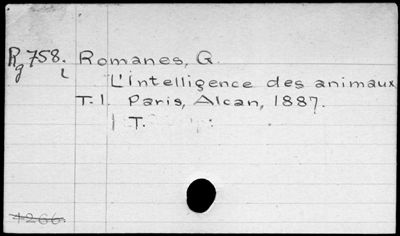 Rg 758. Romanes, G.
L L'intelligence des animaux
T.1. Paris, Alcan, 1887.
1 T.
+266.